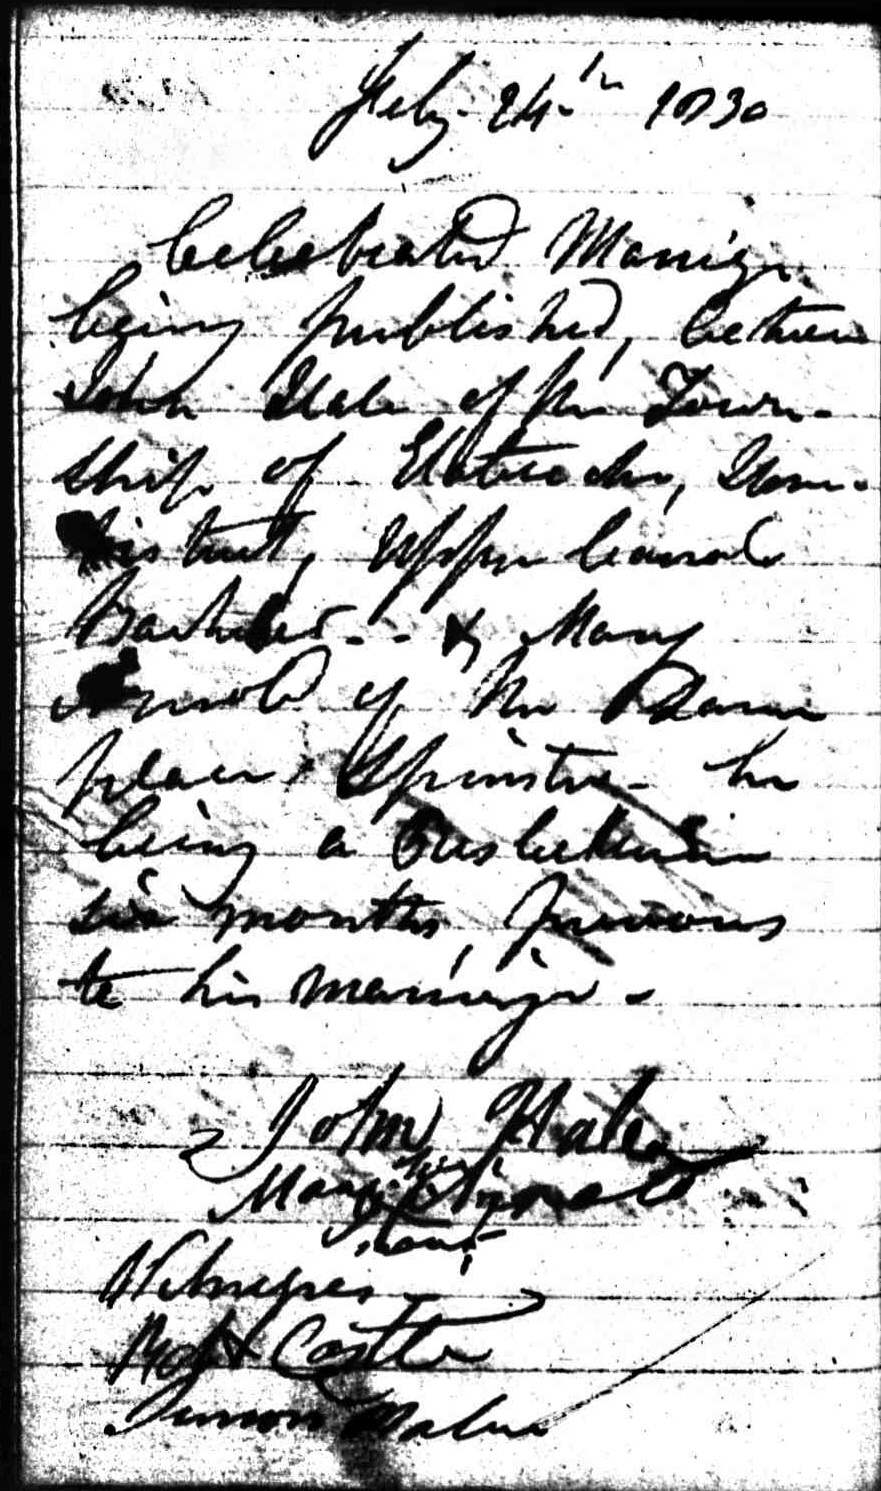 Feby. 24th 1830
Celebrated Marriage
being published, between
John Hale of the Town-
ship of Etobicoke, Home
District, Upper Canada
Bachelor -- & Mary
Arnold of the Same
place, Spinster - he
being a Presbeterian
six months previous
to his marriage.
John Hale
her
Mary Arnold
mark
Witnesses
Robt Castle